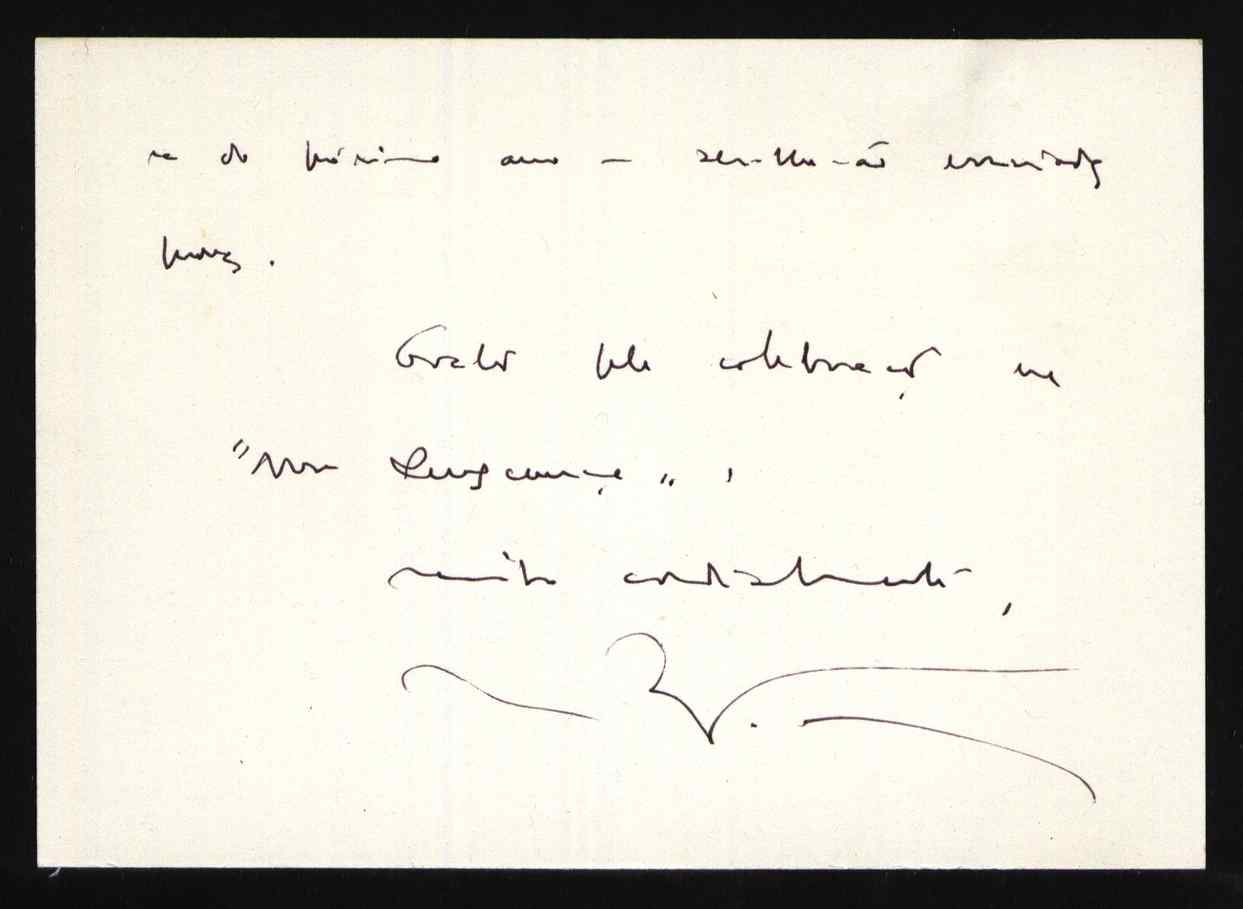 ro do próximo ano – ser-lhe-ão enviadas
provas.
Grato pela colaboração na
"Nova Renascença",
muito cordialmente,